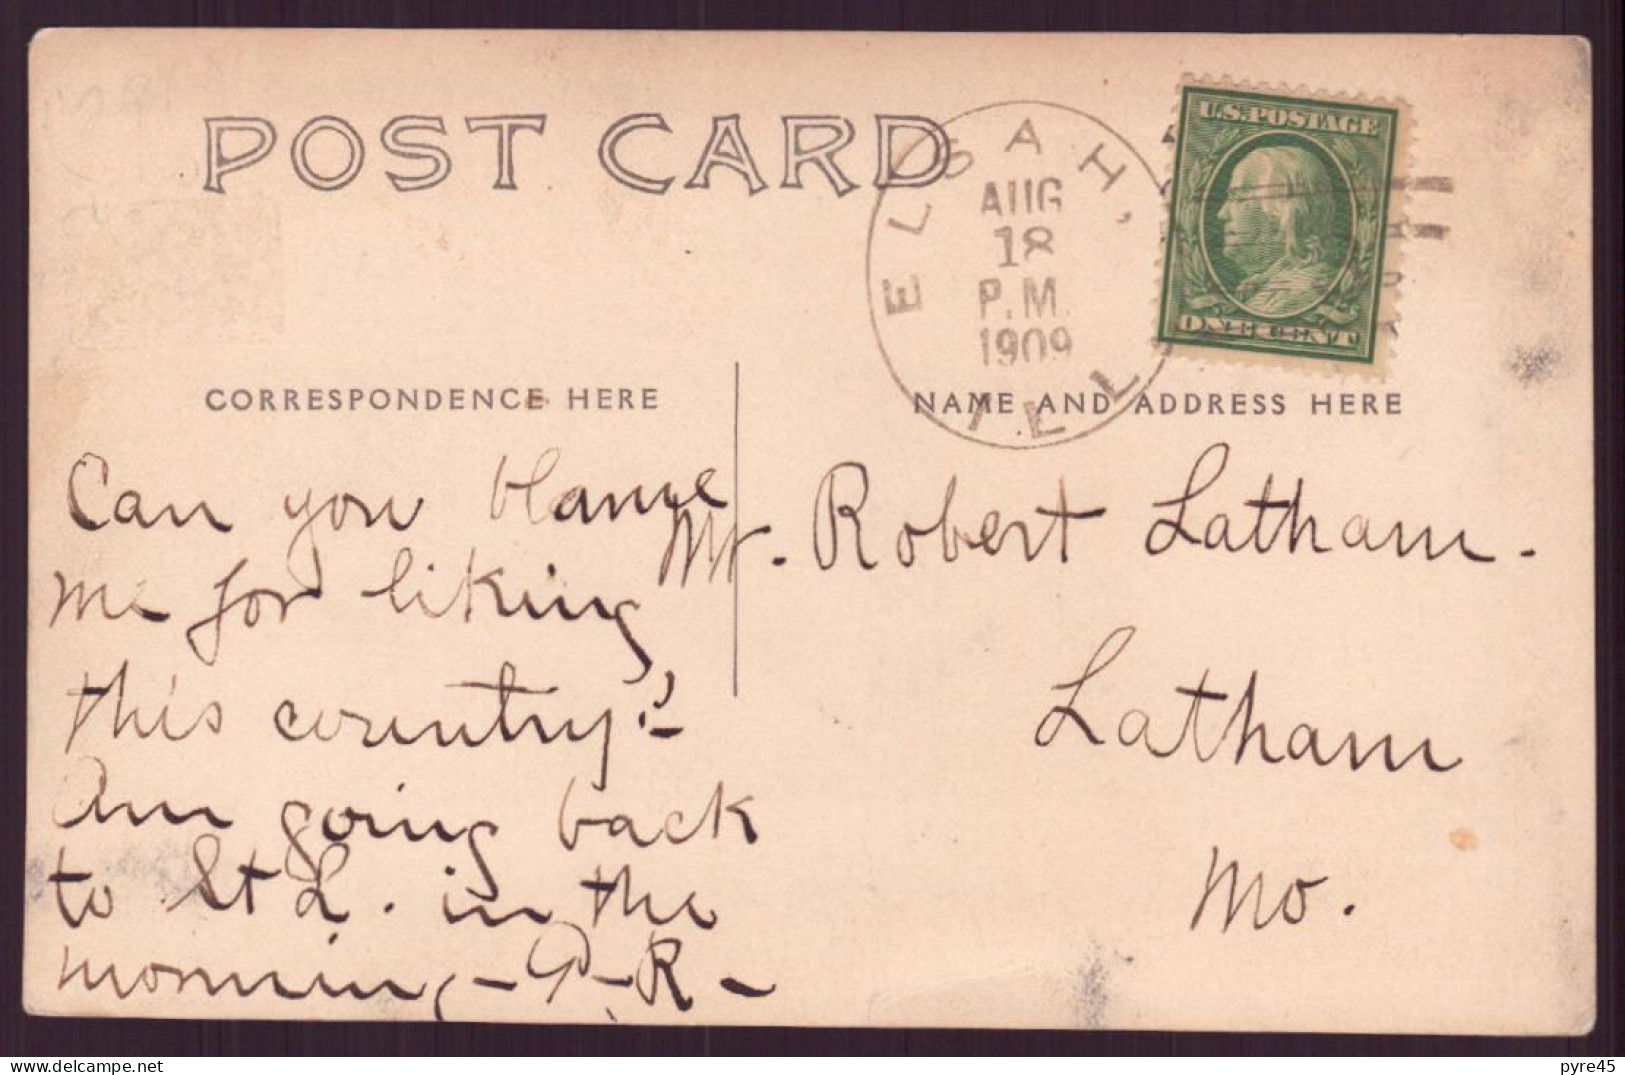 POST CARD
ELSAH, ILL.
AUG
18
P.M.
1909
U.S. POSTAGE
ONE CENT
CORRESPONDENCE HERE
NAME AND ADDRESS HERE
Can you blame
me for liking
this country?-
Am going back
to St L. in the
morning - P-R-
Mr. Robert Latham.
Latham
Mo.
pyre45